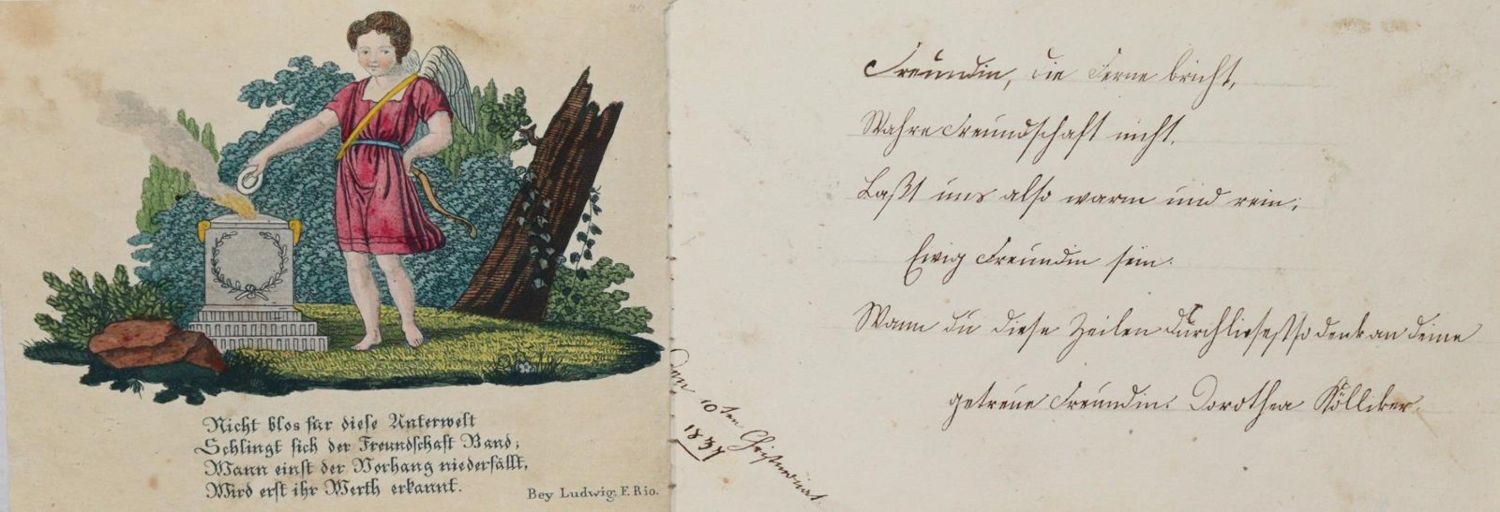 Nicht blos für diese Unterwelt
Schlingt sich der Freundschaft Band;
Wann einst der Vorhang niederfällt,
Wird erst ihr Werth erkannt.
Bey Ludwig. F. Rio.
Freundin, die Ferne bricht,
Wahre Freundschaft nicht.
Laßt uns also warm und rein,
Ewig Freundin sein.
Wann du diese Zeilen durchliesest so denk an deine
getreüe Freundin. Dorothea Kölliker.
den 10ten Christmonat
1837